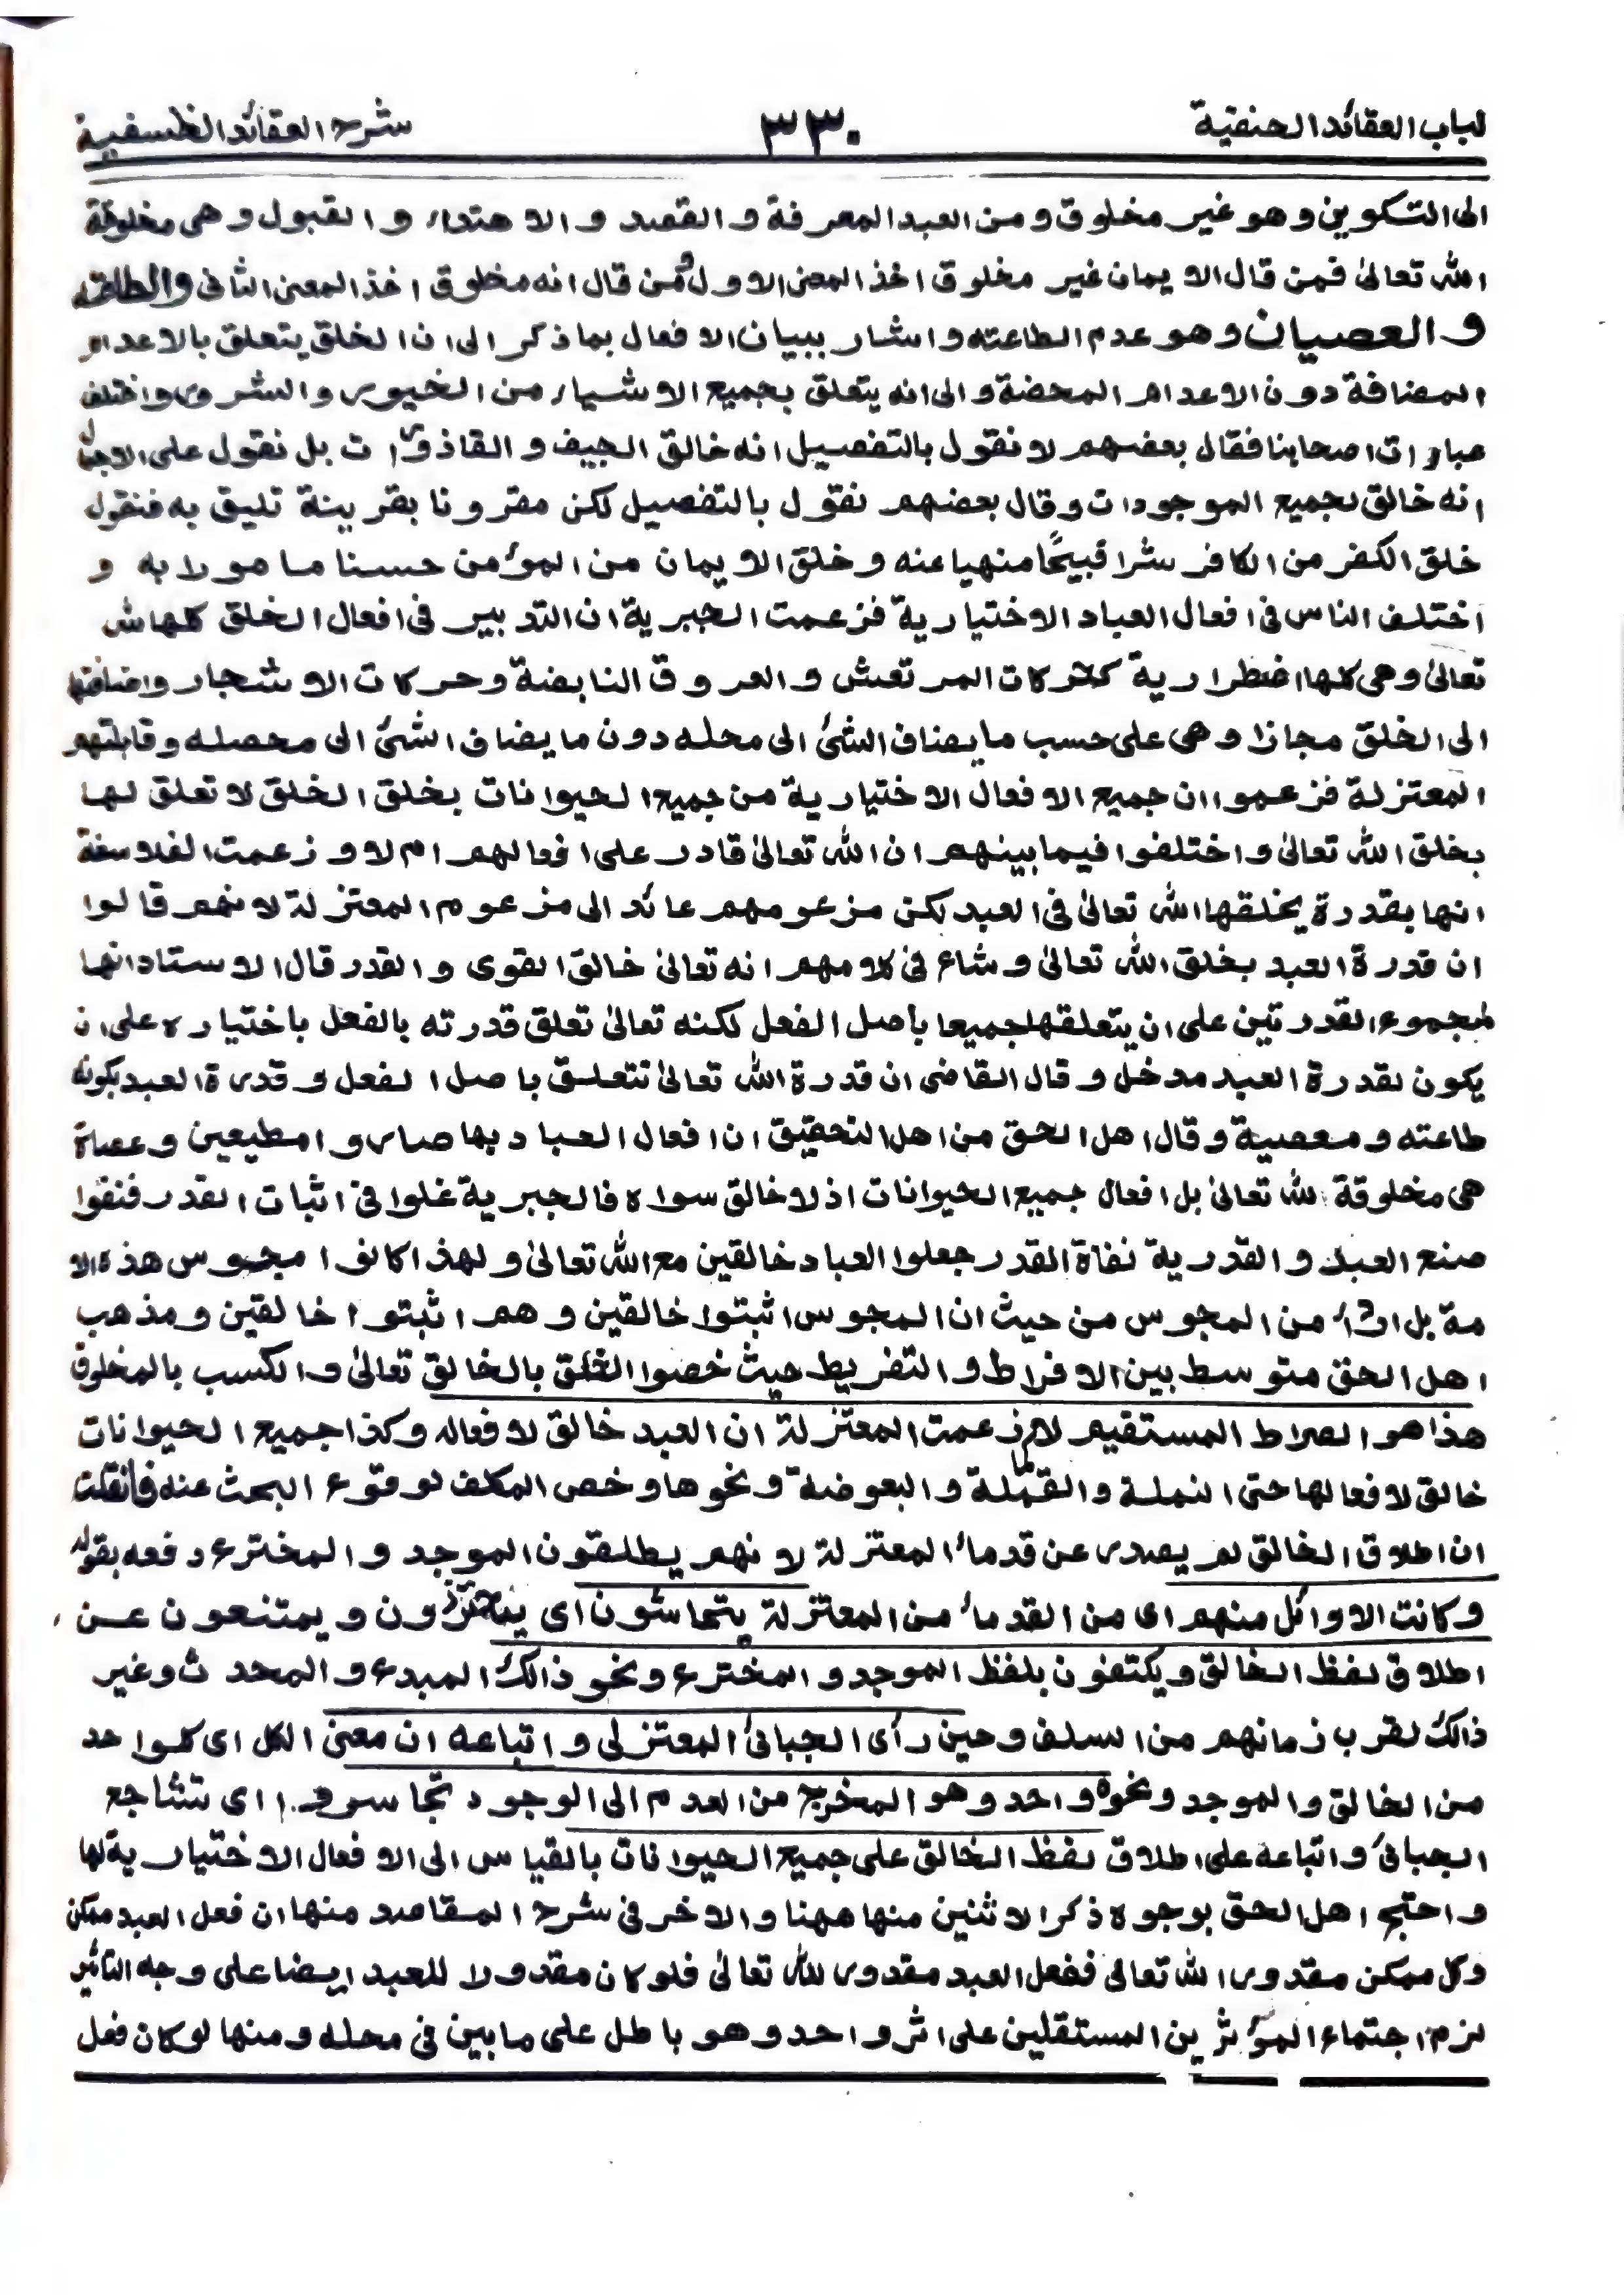 لباب العقائد الحنفية ٣٣٠ شرح العقائد الفلسفية
الى التكوين وهو غير مخلوق ومن العبد المعرفة والقصد والاهتداء والقبول وهى مخلوقة
الله تعالىٰ فمن قال الايمان غير مخلوق اخذ المعنى الاول ومن قال انه مخلوق اخذ المعنى الثانى والطاعته
والعصيان وهو عدم الطاعته واشار ببيان الافعال بما ذكر الى ان الخلق يتعلق بالاعدام
المضافة دون الاعدام المحضة والى انه يتعلق بجميع الاشياء من الخيور والشرور واختلف
عبارات اصحابنا فقال بعضهم لا نقول بالتفصيل انه خالق الجيف والقاذورات بل نقول على الاجمال
انه خالق لجميع الموجودات وقال بعضهم نقول بالتفصيل لكن مقرونا بقرينة تليق به فنقول
خلق الكفر من الكافر شرا قبيحًا منهيا عنه وخلق الايمان من المؤمن حسنا مامورا به و
اختلف الناس فى افعال العباد الاختيارية فزعمت الجبرية ان التدبير فى افعال الخلق كلها لله
تعالىٰ وهى كلها اضطرارية كحركات المرتعش والعروق النابضة وحركات الاشجار واضافتها
الى الخلق مجازا وهى على حسب ما يضاف الشئ الى محله دون ما يضاف الشئ الى محصله وقابلتهم
المعتزلة فزعموا ان جميع الافعال الاختيارية من جميع الحيوانات بخلق الخلق لا تعلق لها
بخلق الله تعالىٰ واختلفوا فيما بينهم ان الله تعالىٰ قادر على افعالهم ام لا وزعمت الفلاسفة
انها بقدرة يخلقها الله تعالىٰ فى العبد لكن مزعومهم عائد الى مزعوم المعتزلة لانهم قالوا
ان قدرة العبد بخلق الله تعالىٰ وشاع فى كلامهم انه تعالىٰ خالق القوى والقدر قال الاستاد انها
لمجموع القدرتين على ان يتعلقها جميعا باصل الفعل لكنه تعالىٰ تعلق قدرته بالفعل باختياره على ان
يكون لقدرة العبد مدخل وقال القاضى ان قدرة الله تعالىٰ تتعلق باصل الفعل وقدرة العبد بكونه
طاعته ومعصية وقال اهل الحق من اهل التحقيق ان افعال العباد بها صاروا مطيعين وعصاة
هى مخلوقة لله تعالىٰ بل افعال جميع الحيوانات اذ لا خالق سواه فالجبرية غلوا فى اثبات القدر فنفوا
صنع العبد والقدرية نفاة القدر جعلوا العباد خالقين مع الله تعالىٰ ولهذا كانوا مجوس هذه الا
مة بل من المجوس من حيث ان المجوس اثبتوا خالقين وهم اثبتوا خالقين ومذهب
اهل الحق متوسط بين الافراط والتفريط حيث خصوا الخلق بالخالق تعالىٰ والكسب بالمخلوق
هذا هو الصراط المستقيم لا كما زعمت المعتزلة ان العبد خالق لافعاله وكذا جميع الحيوانات
خالق لافعالها حتى النملة والقملة والبعوضة ونحوها وخص المكلف لوقوع البحث عنه فان قلت
ان اطلاق الخالق لم يصدر عن قدماء المعتزلة لانهم يطلقون الموجد والمخترع دفعه بقوله
وكانت الاوائل منهم اى من القدماء من المعتزلة يتحاشون اى يتحرزون ويمتنعون عن
اطلاق لفظ الخالق ويكتفون بلفظ الموجد والمخترع ونحو ذالك المبدع والمحدث وغير
ذالك لقرب زمانهم من السلف وحين رأى الجبائى المعتزلى واتباعه ان معنى الكل اى كلواحد
من الخالق والموجد ونحوه واحد وهو المخرج من العدم الى الوجود تجاسروا اى تشاجع
الجبائى واتباعه على اطلاق لفظ الخالق على جميع الحيوانات بالقياس الى الافعال الاختيارية لها
واحتج اهل الحق بوجوه ذكر الاثنين منها ههنا والاخر فى شرح المقاصد منها ان فعل العبد ممكن
وكل ممكن مقدور الله تعالىٰ ففعل العبد مقدور لله تعالىٰ فلو كان مقدورا للعبد ايضا على وجه التاثير
لزم اجتماع المؤثرين المستقلين على اثر واحد وهو باطل على ما بين فى محله ومنها لو كان فعل